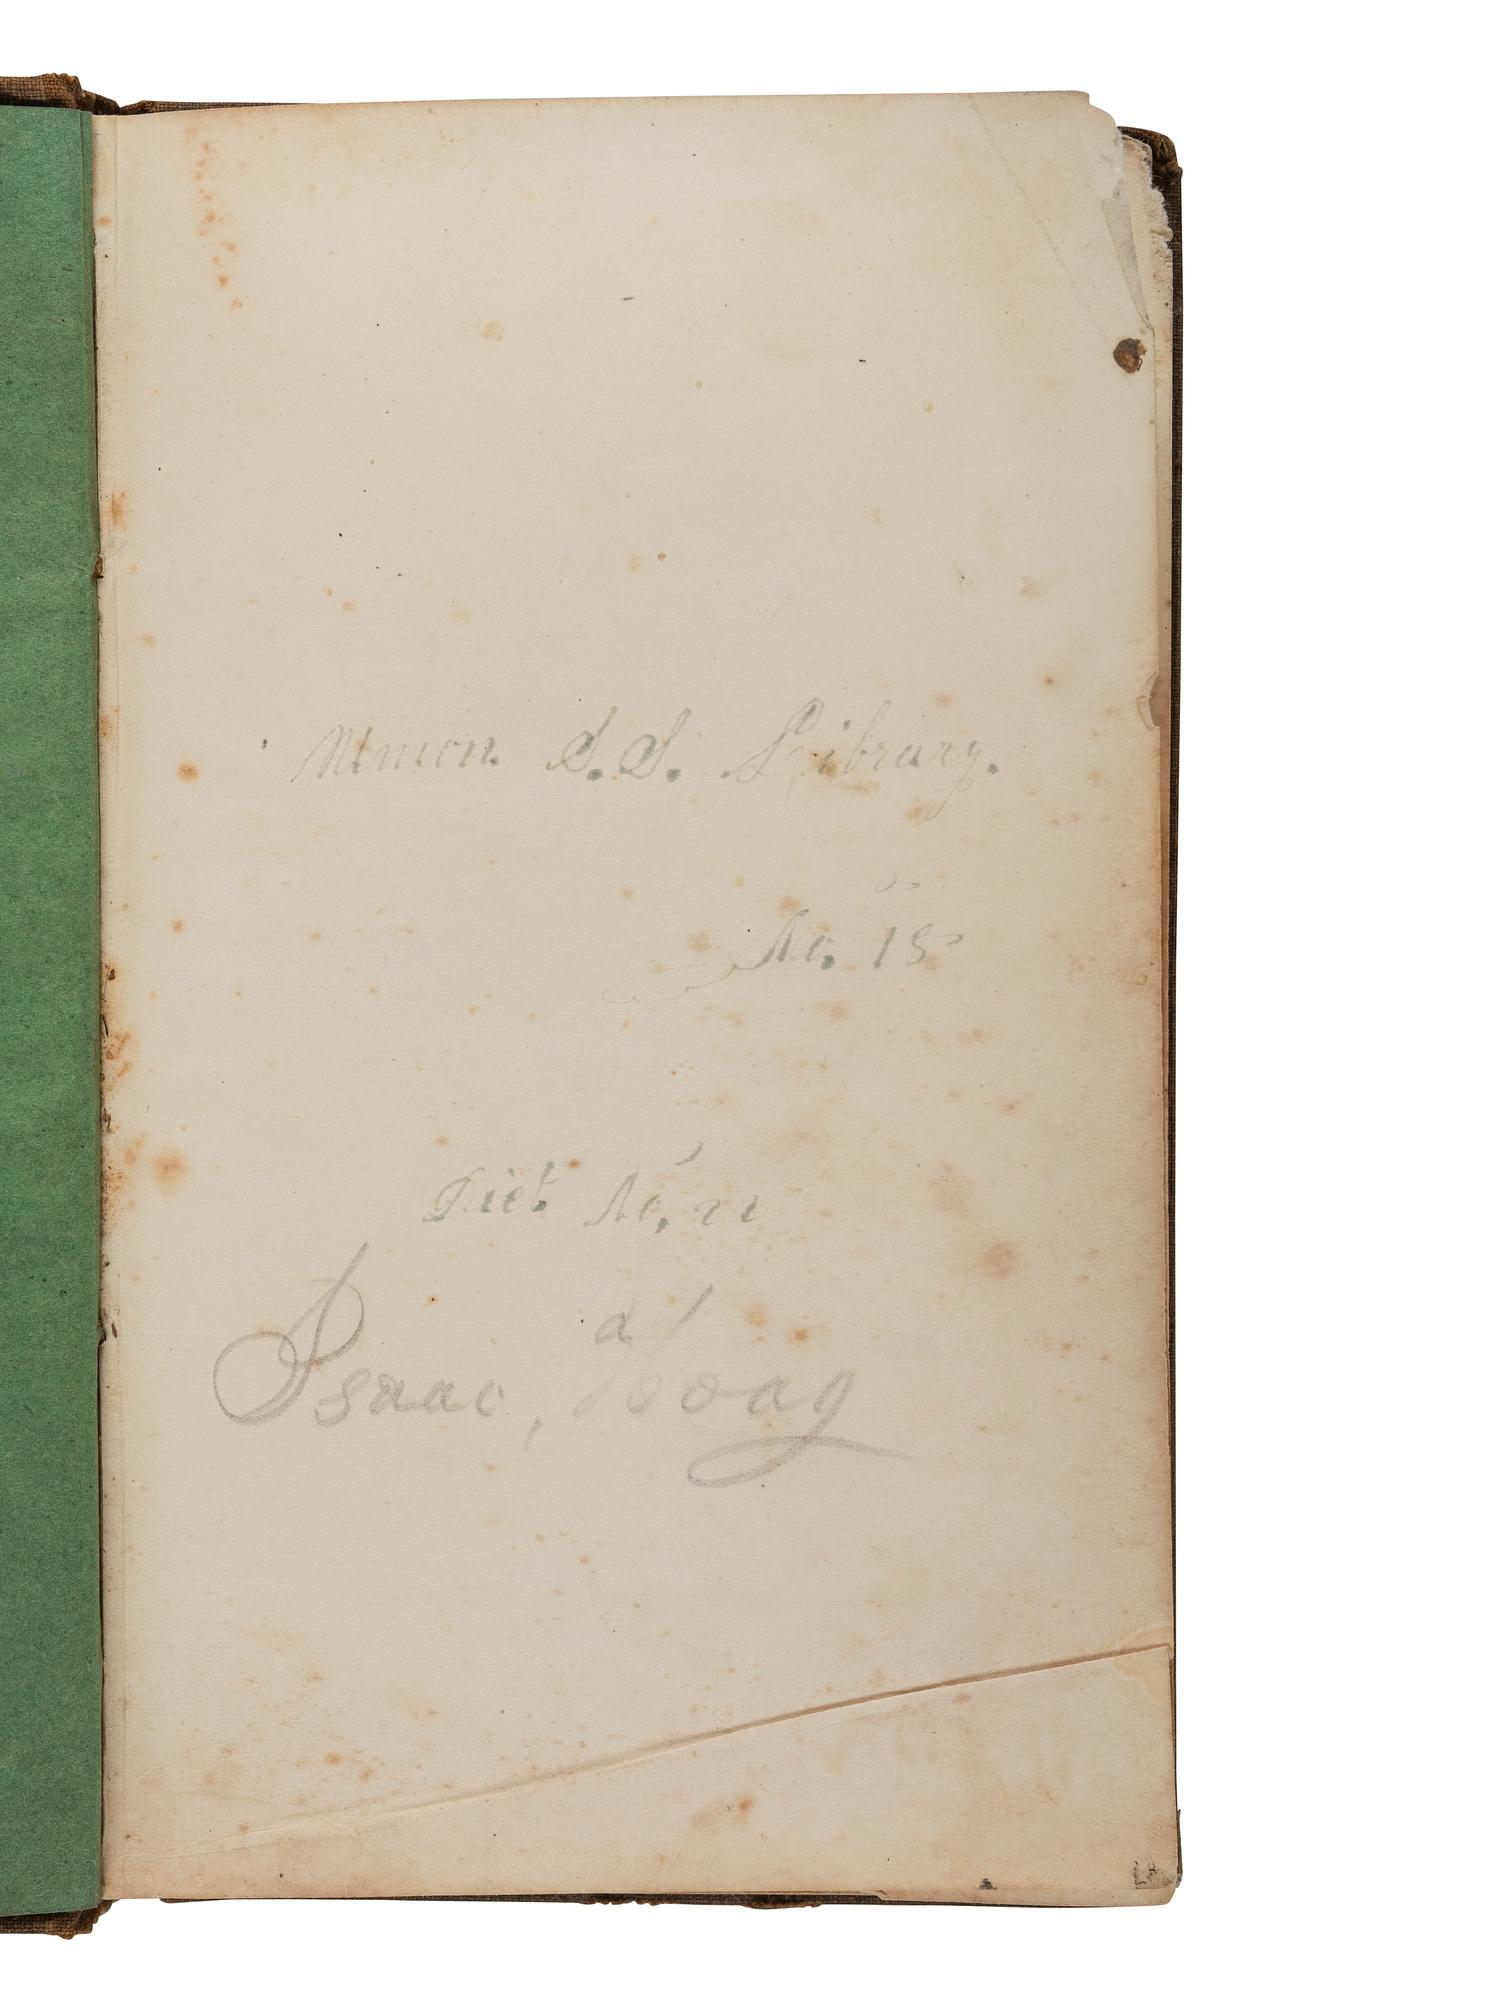 Union S.S. Library.
No. 15
Dist. No. 22
Isaac, a Hoag